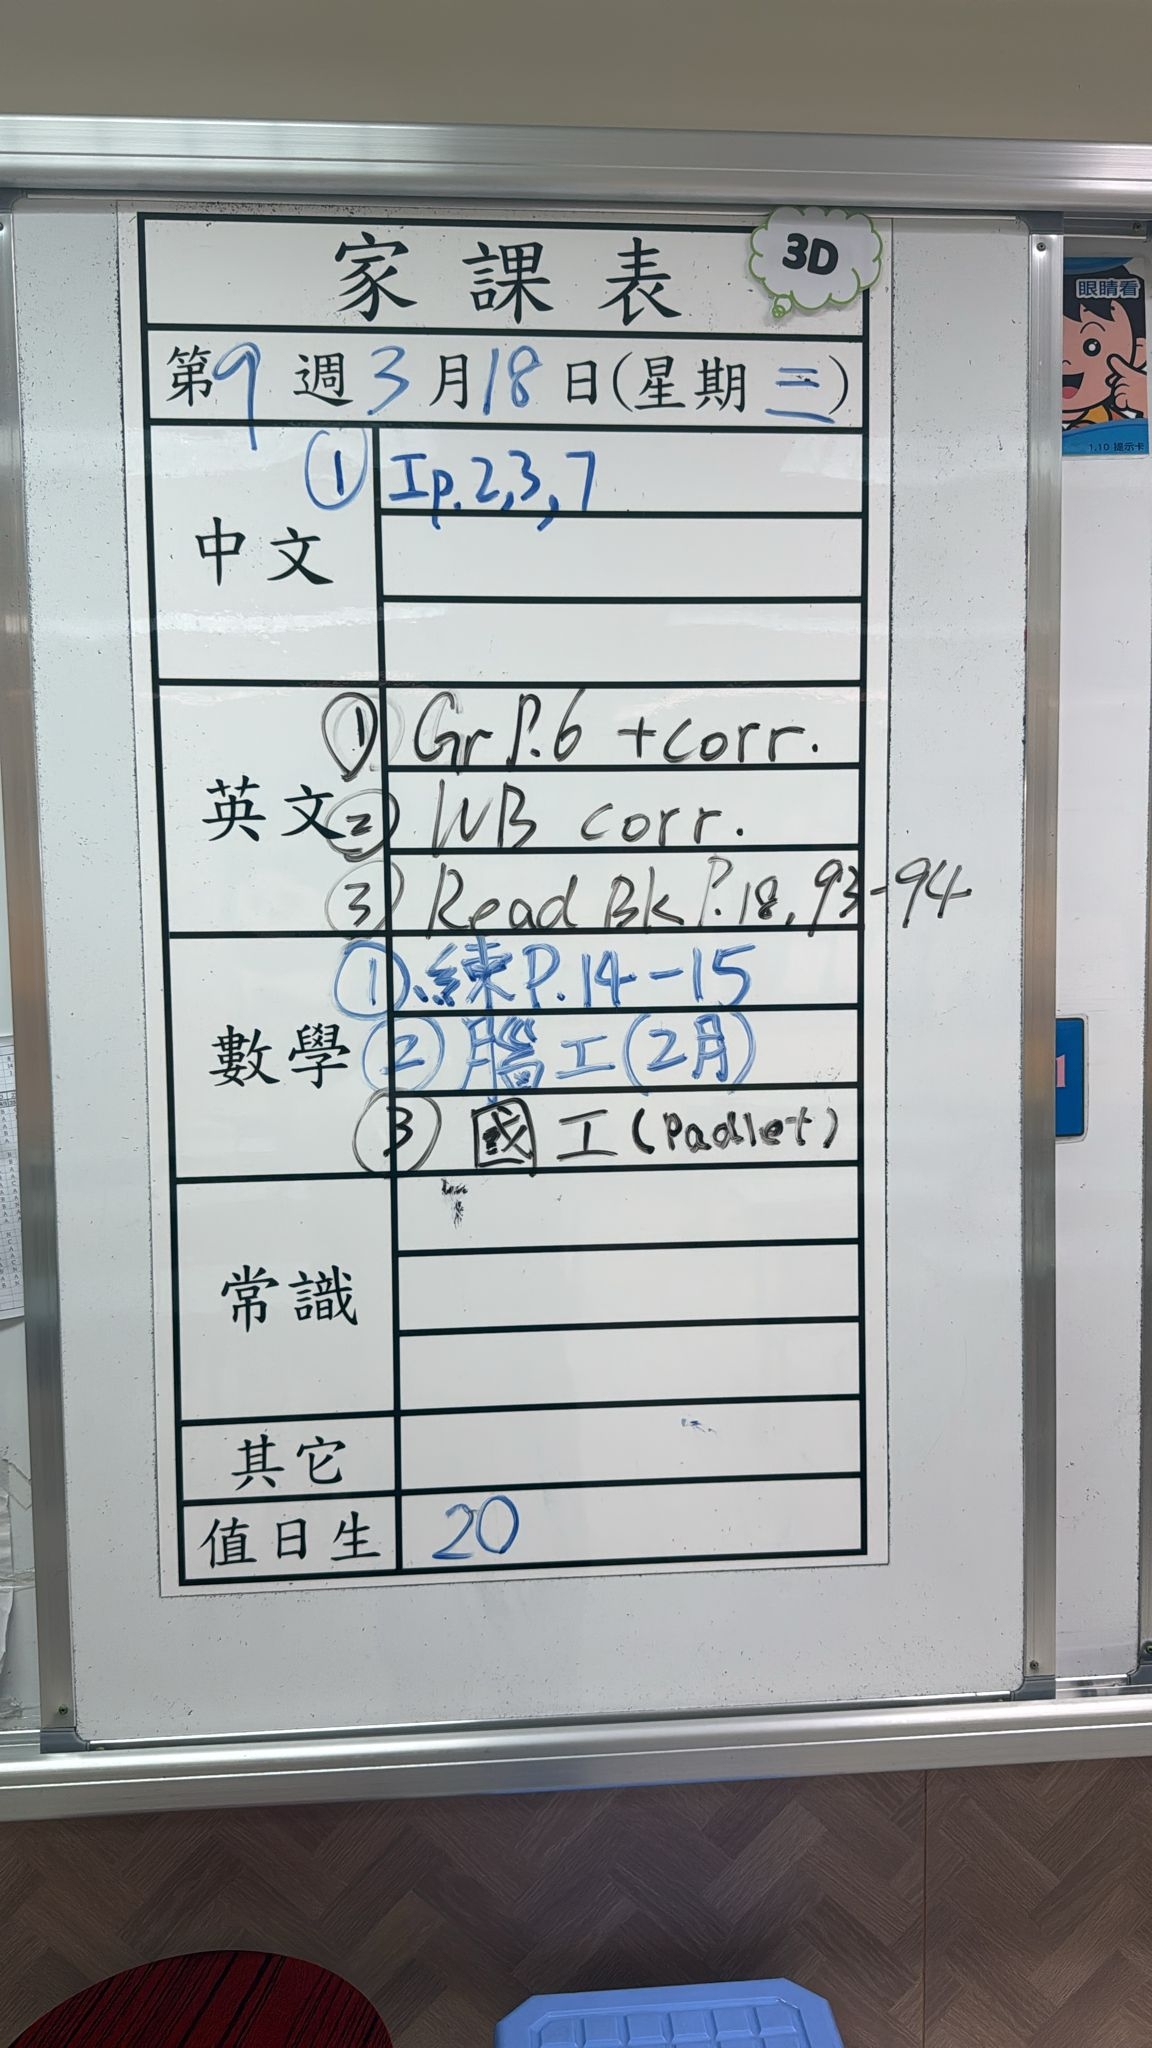 家課表
3D
第9週3月18日(星期三)
中文
① Ip.2,3,7
英文
① Gr P.6 +corr.
② WB corr.
③ Read Bk P.18,93-94
數學
①.練P.14-15
② 腦工(2月)
③ 國工(Padlet)
常識
其它
值日生
20
眼睛看
1.10 提示卡